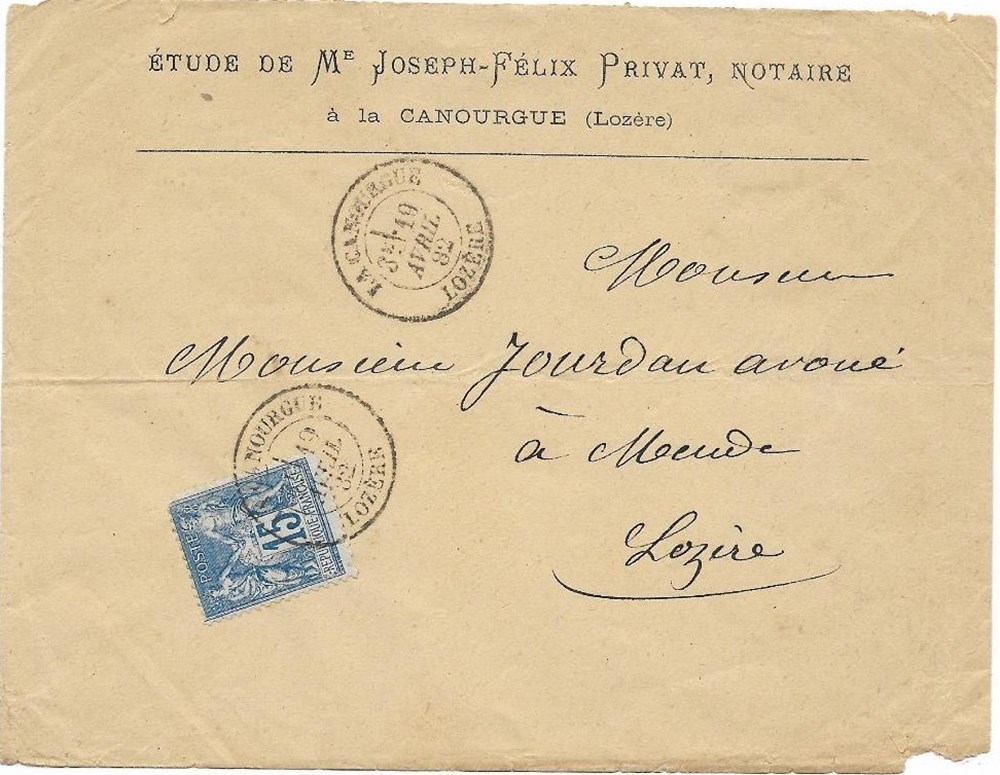 ÉTUDE DE ME JOSEPH-FÉLIX PRIVAT, NOTAIRE
à la CANOURGUE (Lozère)
LA CANOURGUE
19
AVRIL
82
LOZÈRE
Monsieur
Monsieur Jourdan avoué
à Mende
Lozère
NOURGUE
19
AVRIL
82
LOZÈRE
POSTES
15
REPUBLIQUE FRANCAISE